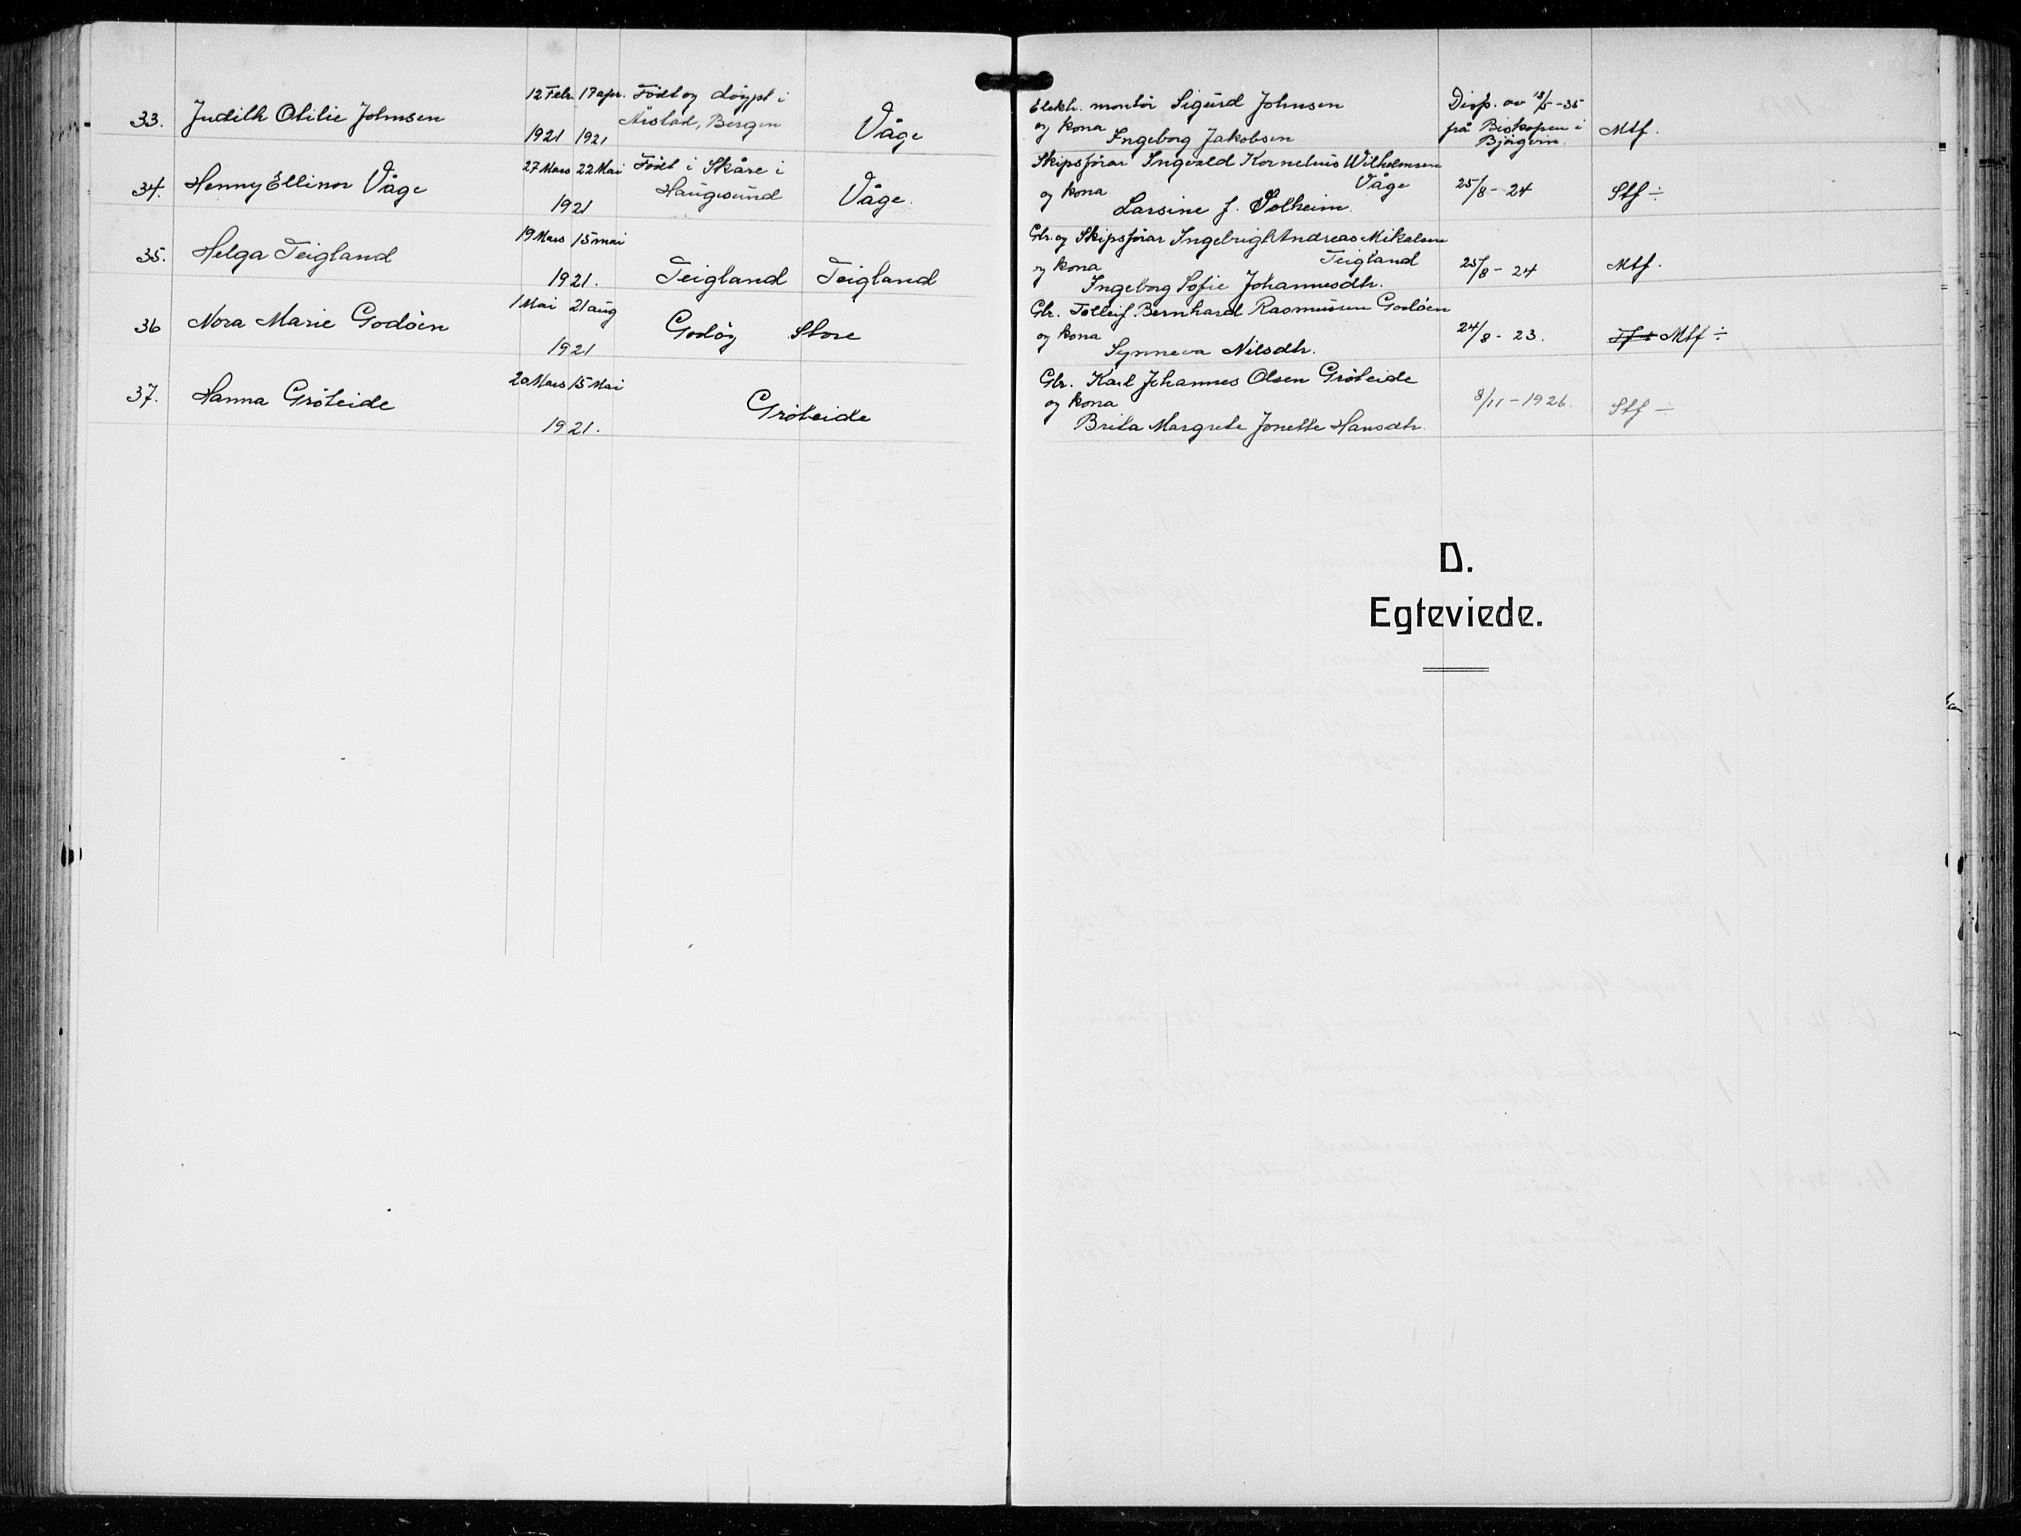 33. Judith Otilie Johnsen 12 Febr. 17 apr. Født og døypt i
1921 1921 Årstad, Bergen Våge
34. Henny Ellinor Våge 27 Mars 22 Mai Født i Skåre i
1921 Haugesund Våge.
35. Helga Teigland 19 Mars 15 mai
1921. Teigland Teigland
36 Nora Marie Godøen 1 Mai 21 aug
1921 Godøy Store
37. Hanna Grøteide 20 Mars 15 Mai
1921. Grøteide
Elektr. montør Sigurd Johnsen Disp. av 13/5-35
og kona Ingeborg Jakobsen frå Biskopen i Bjørgvin. Mtf.
Skipsførar Ingvald Kornelius Wilhelmsen
og kona Våge 25/8-24 Stf ÷
Larsine J. Solheim.
Gbr. og Skipsførar Ingebrigt Andreas Mikalsen
og kona Teigland 25/8-24 Mtf.
Ingeborg Sofie Johannesdtr.
Gbr. Tolleif Bernhard Rasmussen Godøen
og kona 24/8-23. Mtf ÷
Synneva Nilsdtr.
Gbr. Karl Johannes Olsen Grøteide
og kona 8/11-1926. Stf ÷
Brita Margrete Jonette Hansdtr.
D.
Egteviede.